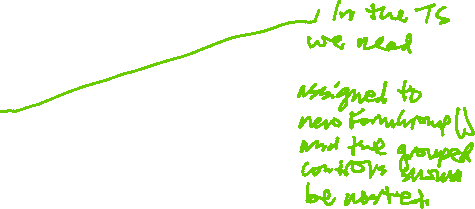 In the TS
we need
assigned to
new FormGroup()
and the grouped
controls should
be nested.